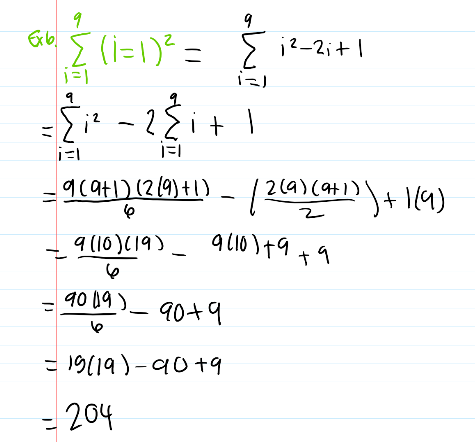 Ex6. \sum_{i=1}^{9} (i=1)^2 = \sum_{i=1}^{9} i^2-2i+1
= \sum_{i=1}^{9} i^2 - 2\sum_{i=1}^{9} i + 1
= \frac{9(9+1)(2(9)+1)}{6} - (\frac{2(9)(9+1)}{2}) + 1(9)
= \frac{9(10)(19)}{6} - 9(10)+9 + 9
= \frac{90(19)}{6} - 90+9
= 15(19)-90+9
= 204